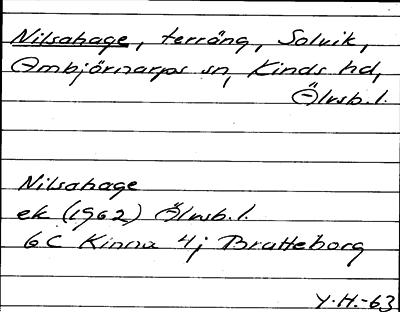 Nilsahage, terräng, Solvik,
Ambjörnarps sn, Kinds hd,
Älvsb. l.
Nilsahage
ek (1962) Älvsb. l.
6 C Kinna 4 j Bratteborg
Y. H.-63